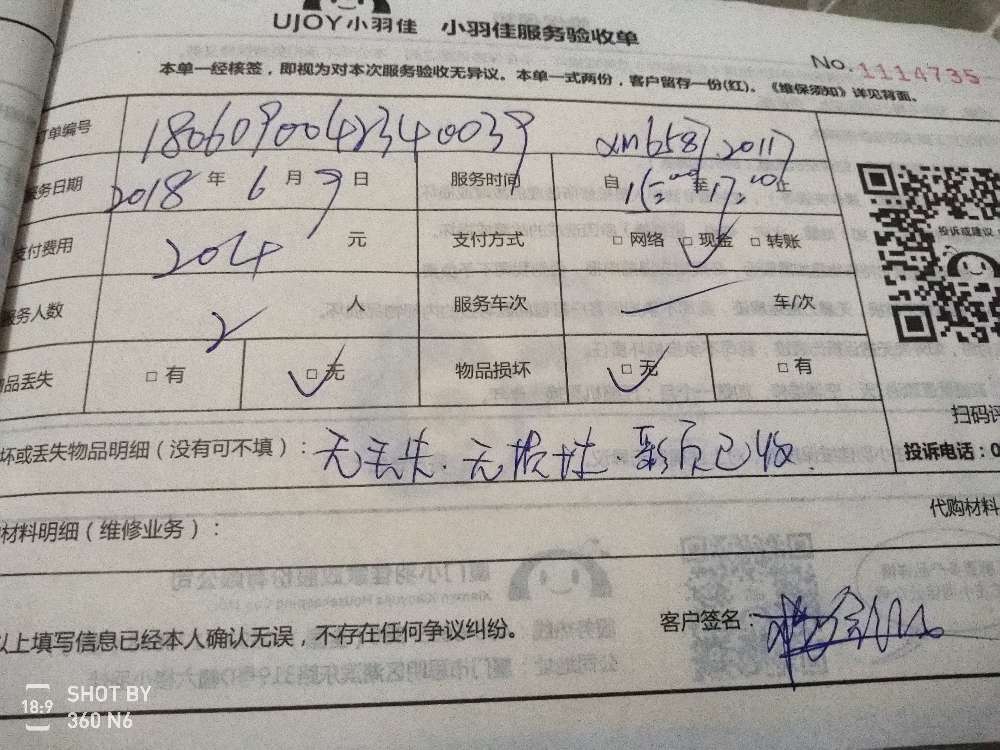 UJOY小羽佳 小羽佳服务验收单
No.1114735
本单一经核签，即视为对本次服务验收无异议。本单一式两份，客户留存一份(红)。《维保须知》详见背面。
订单编号 1806090042340039 xm6587 2011
服务日期 2018 年 6 月 9 日 服务时间 自 15:00 至 17:00 止
支付费用 204 元 支付方式 □ 网络 □ 现金 □ 转账
服务人数 2 人 服务车次 车/次
物品丢失 □ 有 □ 无 物品损坏 □ 无 □ 有
投诉或建议
扫码
坏或丢失物品明细（没有可不填）：无丢失.无损坏 已收
投诉电话：0
代购材料
材料明细（维修业务）：
以上填写信息已经本人确认无误，不存在任何争议纠纷。
客户签名：
SHOT BY
18:9
360 N6